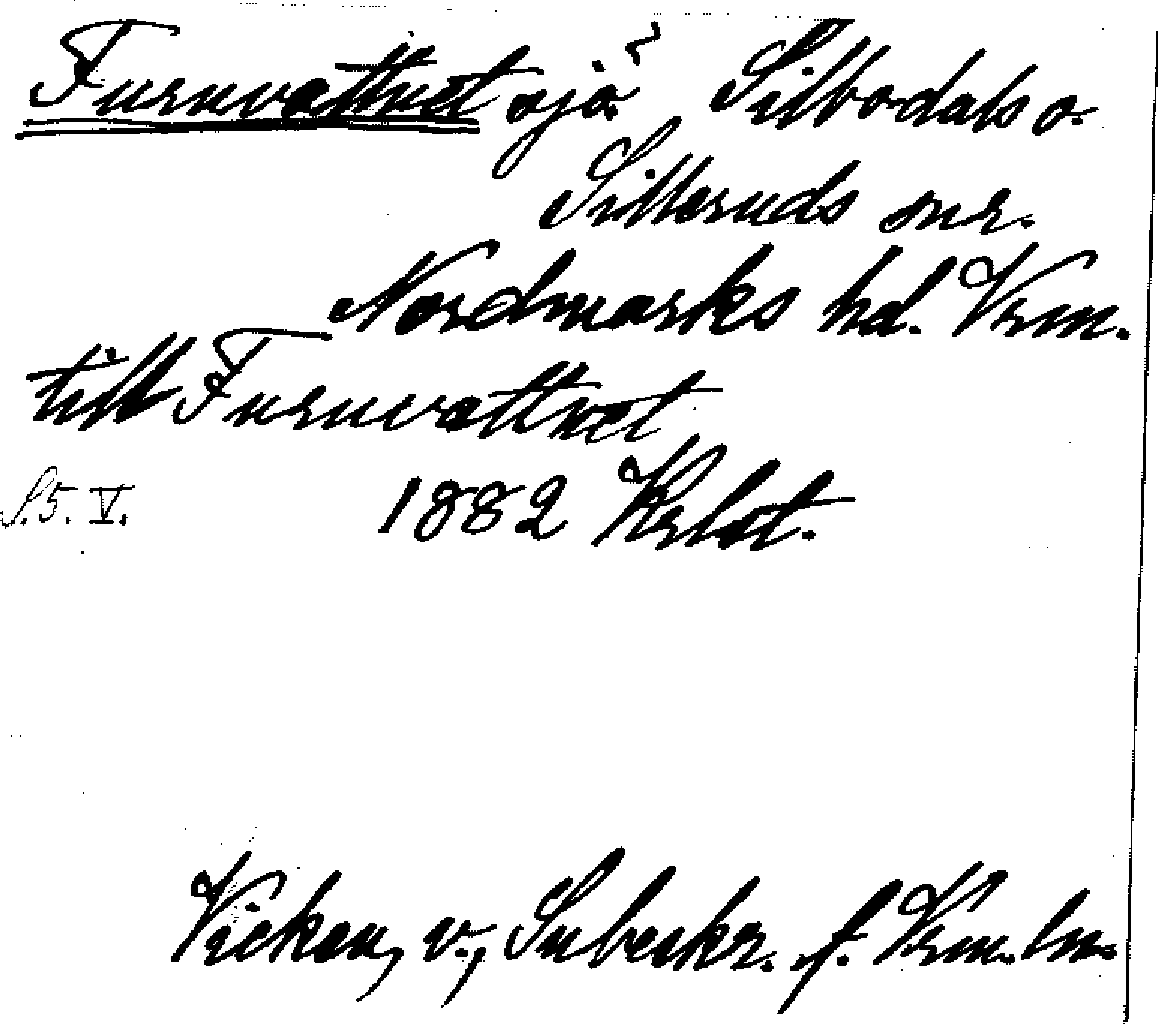 Furuvattnet sjö Silbodals o.
Silleruds snr.
Nordmarks hd. Vrm.
till Furuvattnet
S. 5. V. 1882 Krlst.
Vicken, v., Snbeskr. f. Vrm. ln.